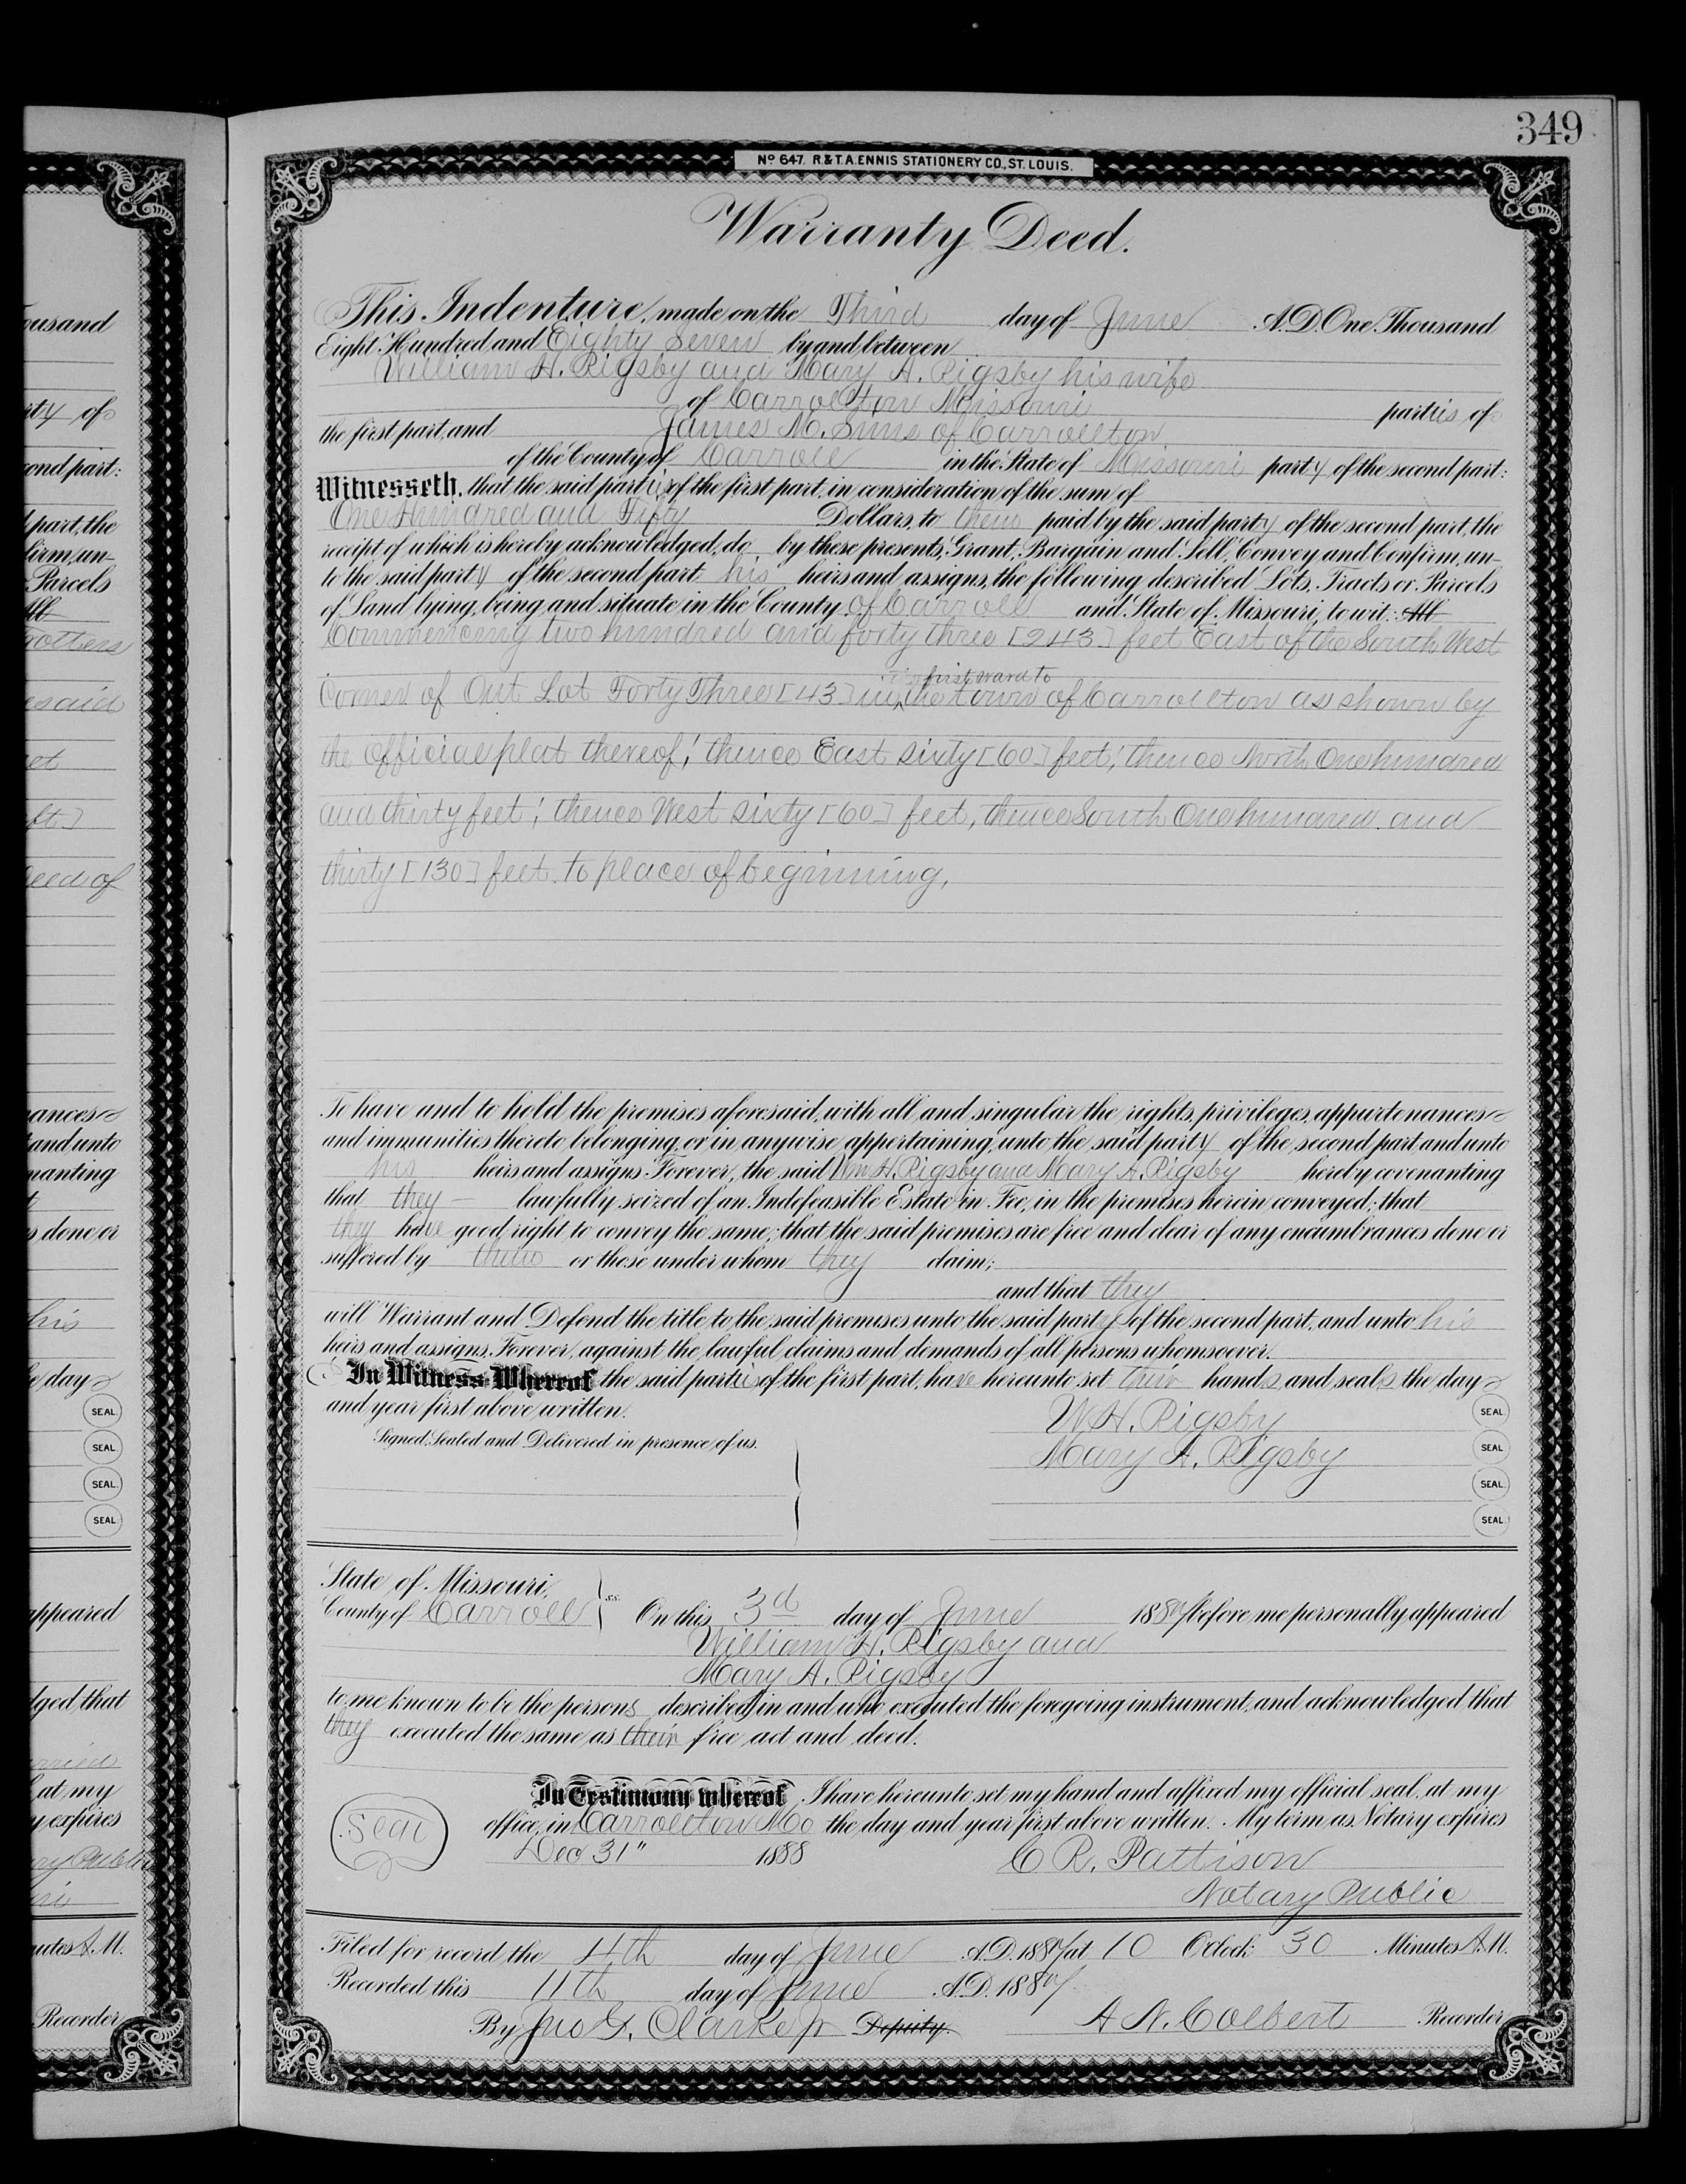 349
No 647. R & T. A. ENNIS STATIONERY CO., ST. LOUIS.
Warranty Deed.
This Indenture, made on the Third day of June A.D. One Thousand
Eight Hundred and Eighty Seven by and between
William H. Rigsby and Mary A. Rigsby his wife
of Carrollton Missouri parties of
the first part, and James M. Sims of Carrollton
of the County of Carroll in the State of Missouri party of the second part:
Witnesseth, that the said parties of the first part, in consideration of the sum of
One Hundred and Fifty Dollars, to them paid by the said party of the second part, the
receipt of which is hereby acknowledged, do by these presents, Grant, Bargain and Sell, Convey and Confirm, un-
to the said party of the second part his heirs and assigns, the following described Lots, Tracts or Parcels
of Land lying, being, and situate in the County of Carroll and State of Missouri, to wit: All
Commencing two hundred and forty three [243] feet East of the South West
first ward to
corner of Out Lot Forty Three [43] in the town of Carrollton as shown by
the official plat thereof; thence East sixty [60] feet; thence North One hundred
and thirty feet; thence West sixty [60] feet, thence South One hundred and
thirty [130] feet to place of beginning,
To have and to hold the premises aforesaid, with all and singular the rights, privileges, appurtenances
and immunities thereto belonging, or in anywise appertaining, unto the said party of the second part, and unto
his heirs and assigns Forever, the said Wm H. Rigsby and Mary A. Rigsby hereby covenanting
that they — lawfully seized of an Indefeasible Estate in Fee, in the premises herein conveyed; that
they have good right to convey the same; that the said premises are free and clear of any encumbrances done or
suffered by them or those under whom they claim;
and that they
will Warrant and Defend the title to the said premises unto the said party of the second part, and unto his
heirs and assigns, Forever, against the lawful claims and demands of all persons whomsoever.
In Witness Whereof the said parties of the first part, have hereunto set their hands and seals the day
and year first above written.
Signed, Sealed and Delivered in presence of us.
W H. Rigsby SEAL.
Mary A. Rigsby SEAL
SEAL.
SEAL.
State of Missouri,
County of Carroll ss. On this 3d day of June 1887 before me personally appeared
William H. Rigsby and
Mary A. Rigsby
to me known to be the persons described in and who executed the foregoing instrument, and acknowledged that
they executed the same as their free act and deed.
In Testimony whereof, I have hereunto set my hand and affixed my official seal, at my
Seal
office, in Carrollton Mo the day and year first above written. My term as Notary expires
Dec 31" 1888 C R. Pattison
Notary Public
Filed for record the 4th day of June A.D. 1887 at 10 O'clock 30 Minutes A.M.
Recorded this 11th day of June A.D. 1887
By Jno G. Clarke jr Deputy. A N. Colbert Recorder